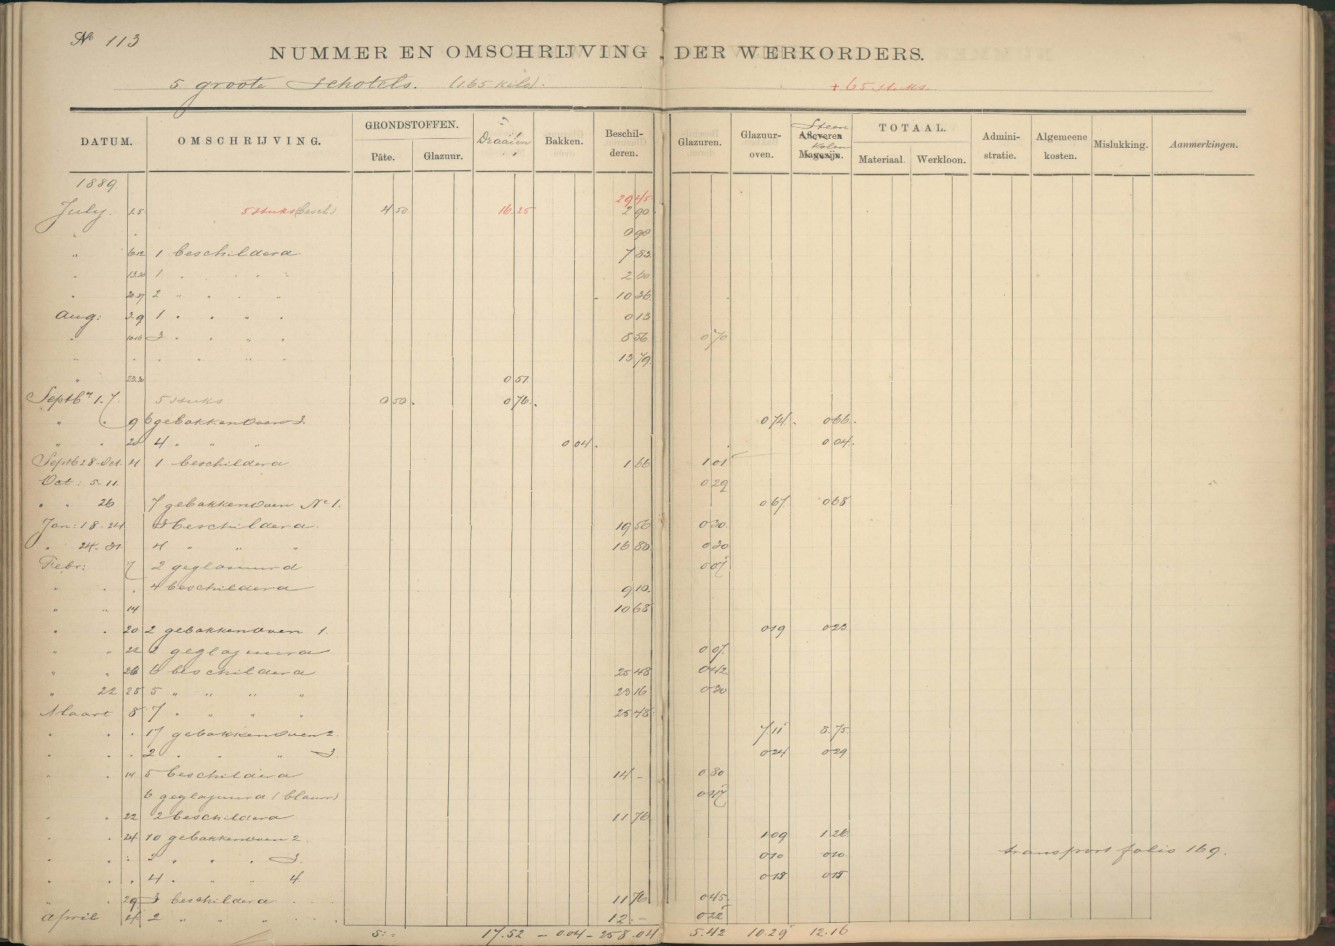 № 113
NUMMER EN OMSCHRIJVING DER WERKORDERS.
5 groote Schotels. (1.65 kilo). + 65 stuks.
DATUM. OMSCHRIJVING. GRONDSTOFFEN. Pâte. Glazuur. Draaien Bakken. Beschil-deren. Glazuren. Glazuur-oven. Afleveren Magazijn. Steen Kolen TOTAAL. Materiaal. Werkloon. Admini-stratie. Algemeene kosten. Mislukking. Aanmerkingen.
1889
29 45
July 5 stuks 4 50 16.25 2 90
0 90
" 1 beschilderd 7 83
" 1 " " " " 2 60
" 2 " " " " 10 36
Aug: 29 1 " " " " 0 13
" 3 " " " " 8 56 0 70
" " " " " " 13 79
" 0 51
Septbr 1. 7 5 stuks 0 50. 0 76.
" " 9 6 gebakken Oven 3 0 74. 0 66.
" " 20 4 " " " 0 04. 0 04.
Septb 28. Oct. 11 1 beschilderd 1 66 1 01
Oct: 5-11 0 29
" " 26 7 gebakken Oven № 1. 0 67 0 68
Jan: 18-24 3 beschilderd. 19 56 0 30
" 24-31 4 " " " 16 80 0 30
Febr: 7 2 geglazuurd 0 07
" " " 4 beschilderd 9 10
" " 14 10 63
" " 20 2 gebakken Oven 1. 0 19 0 23
" " 22 2 geglazuurd 0 07
" " 26 6 beschilderd 25 48 0 42
" 22 28 5 " " " " 23 16 0 30
Maart 8 7 " " " " 25 48
" " " 17 gebakken Oven 2 7 11 8.75
" " " 2 " " " 3. 0 24 0 29
" 14 5 beschilderd 14 - 0 80
6 geglazuurd (blauw)
" 22 2 beschilderd 11 76
" 24 10 gebakken Oven 2 1 09 1.26
" " 2 " " " 3. 0 10 0 10 transport folio 169.
" " " 4 " " " 4 0 18 0 18
" 29 3 beschilderd 11 76 0 45
April 4 2 " " " 12.- 0 22
5:= 17.52 - 0.04 - 258.04 5.42 10.29 12.16